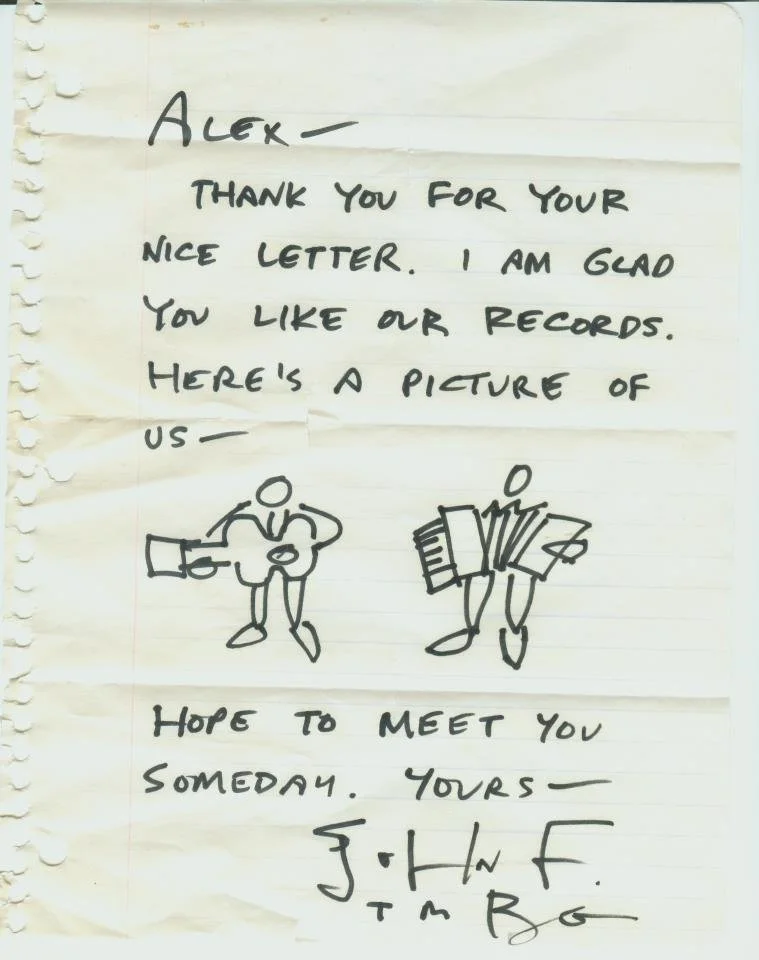 ALEX —
THANK YOU FOR YOUR
NICE LETTER. I AM GLAD
YOU LIKE OUR RECORDS.
HERE'S A PICTURE OF
US —
HOPE TO MEET YOU
SOMEDAY. YOURS —
JOHN F.
TMBG